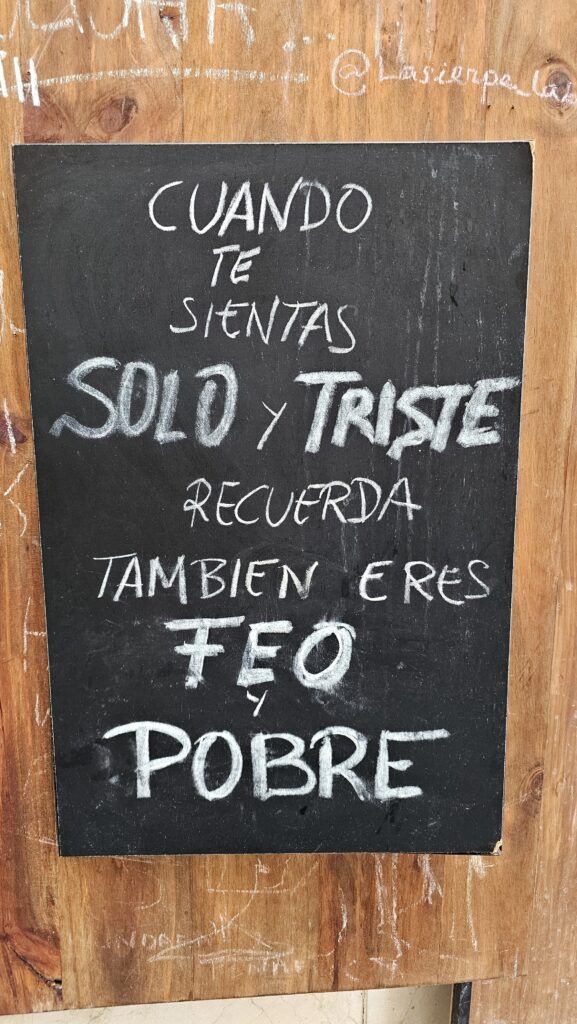 @Lasierpe_lab
CUANDO
TE
SIENTAS
SOLO Y TRISTE
RECUERDA
TAMBIEN ERES
FEO
Y
POBRE